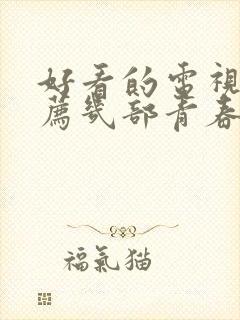 好看的電視
薦幾部青春
福氣猫